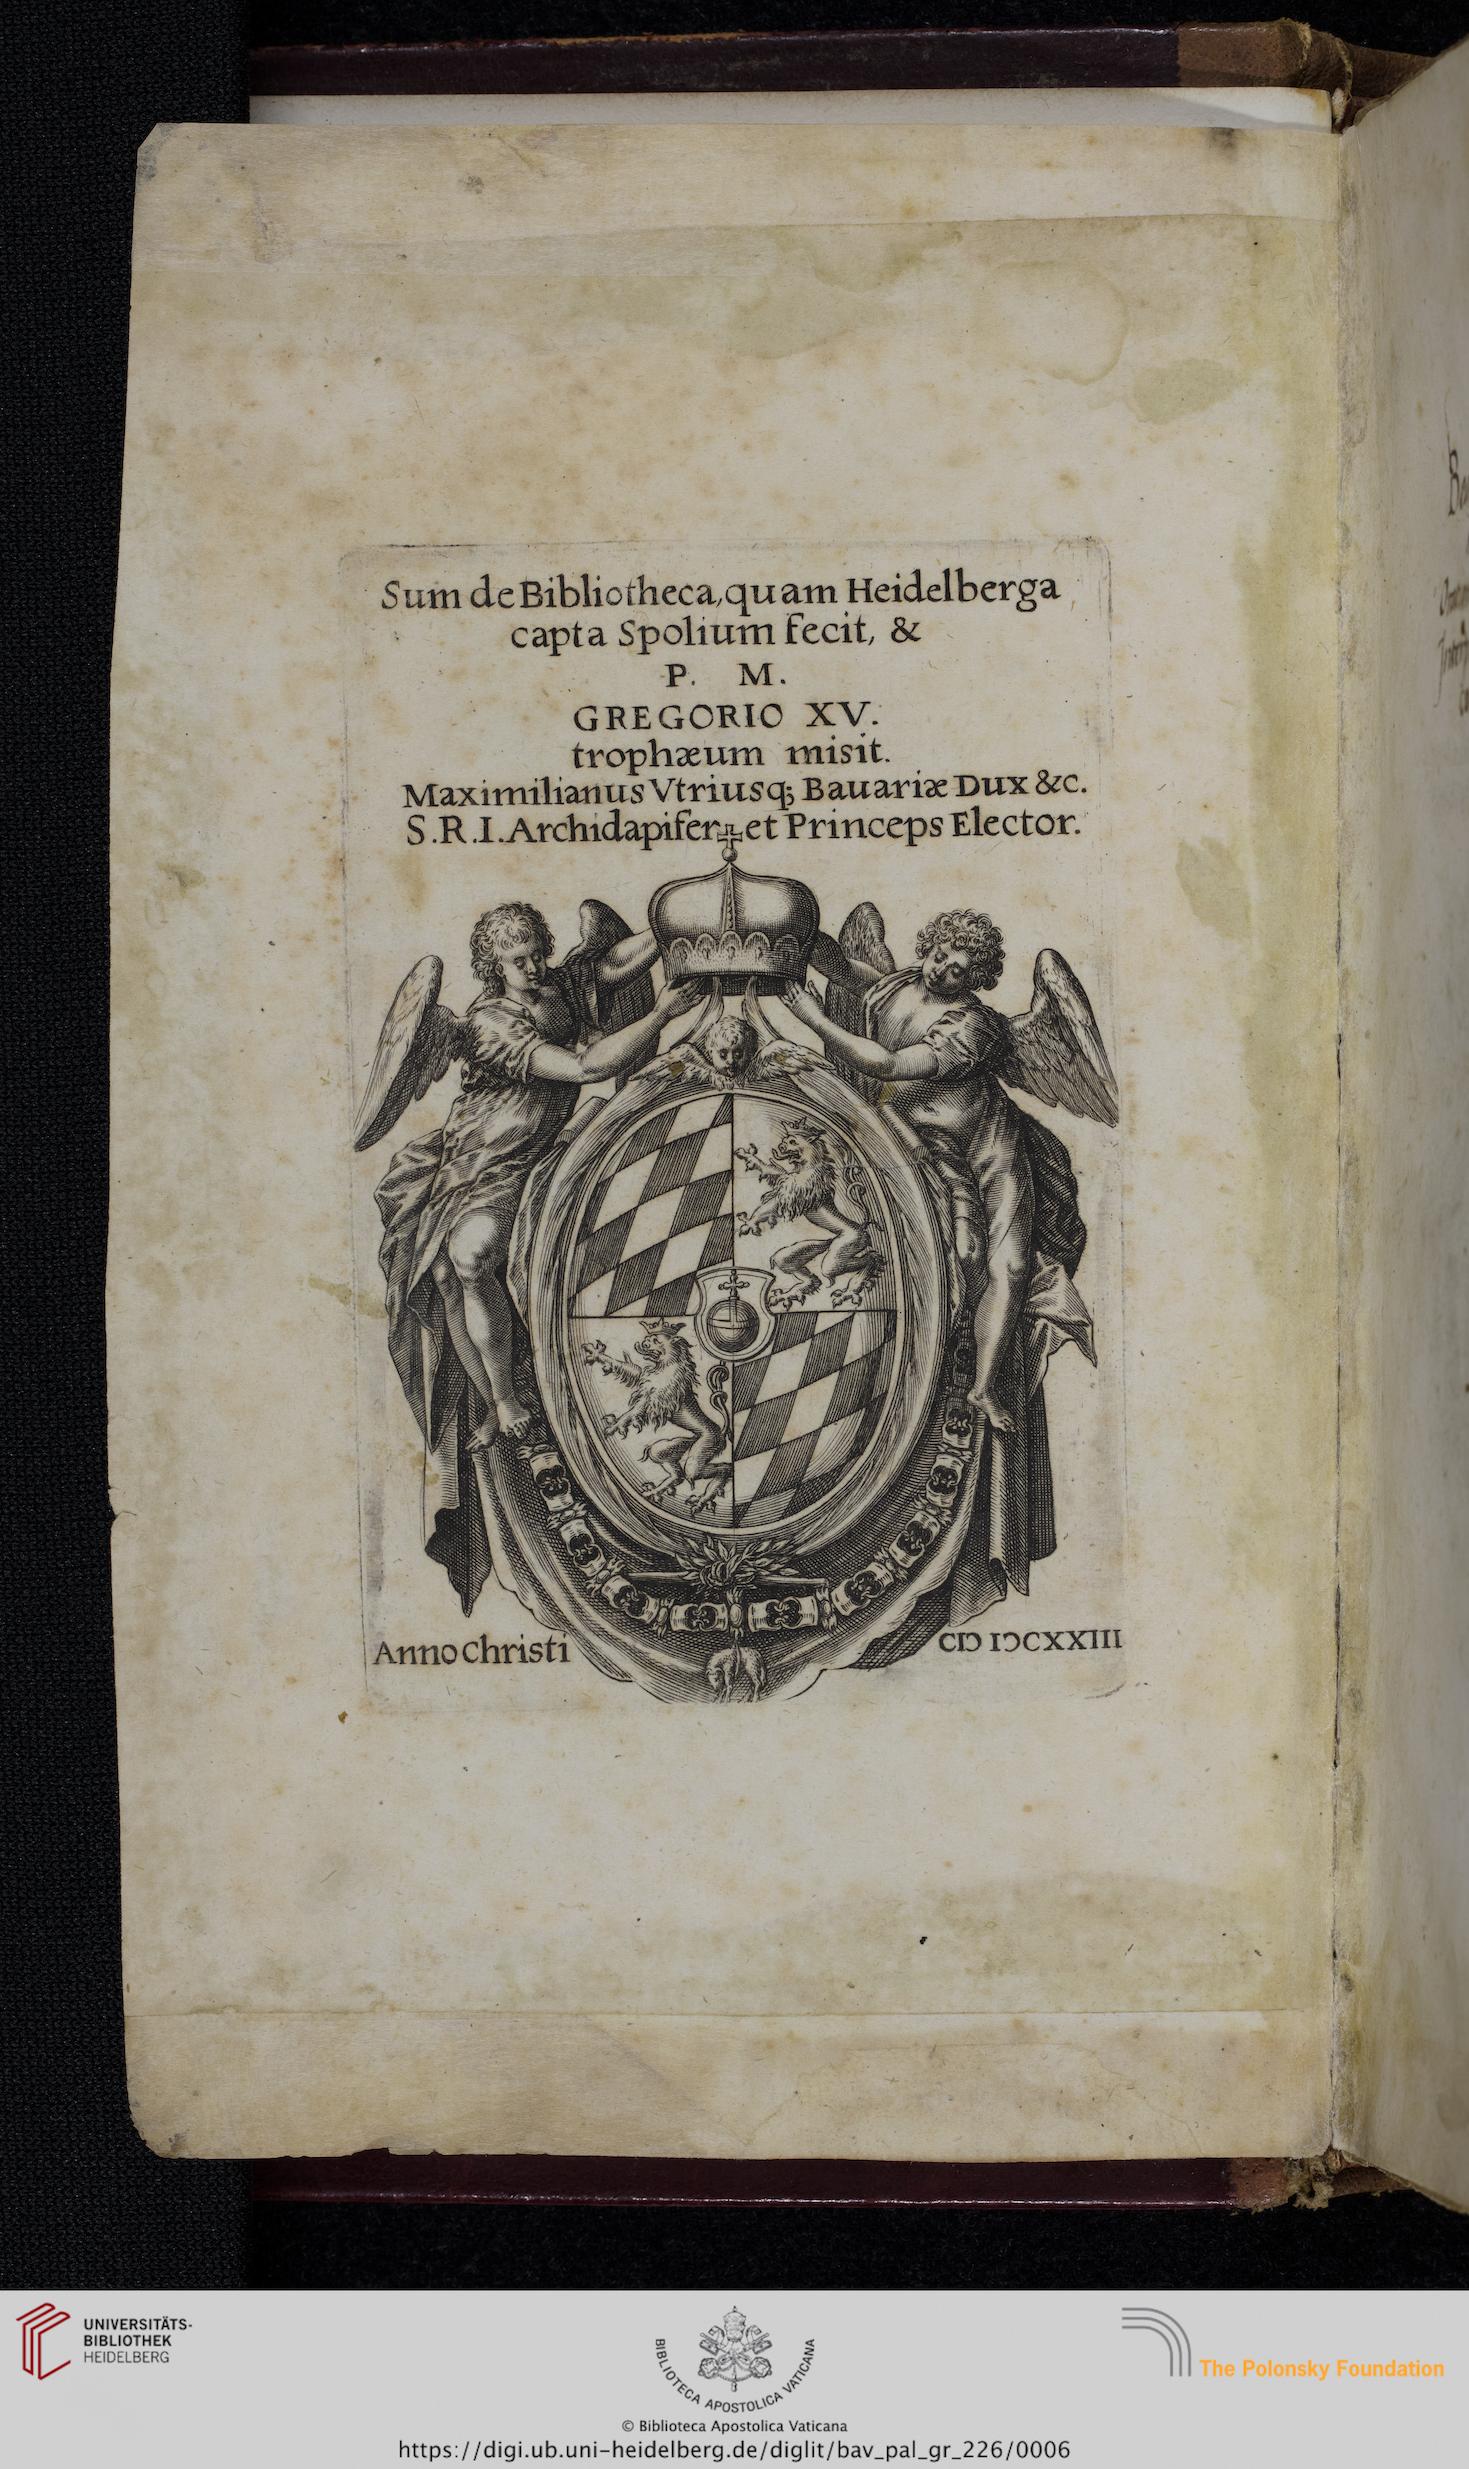 Sum de Bibliotheca, quam Heidelberga
capta Spolium fecit, &
P. M.
GREGORIO XV.
trophæum misit.
Maximilianus Vtriusq; Bauariæ Dux &c.
S.R.I. Archidapifer et Princeps Elector.
Anno Christi
CIↃ IↃCXXIII
UNIVERSITÄTS-
BIBLIOTHEK
HEIDELBERG
BIBLIOTECA APOSTOLICA VATICANA
© Biblioteca Apostolica Vaticana
The Polonsky Foundation
https://digi.ub.uni-heidelberg.de/diglit/bav_pal_gr_226/0006